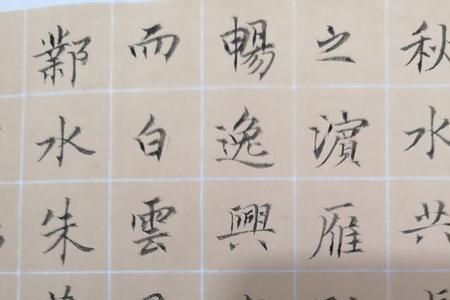 秋水共
之濱雁
暢逸興
而白雲
鄴水朱